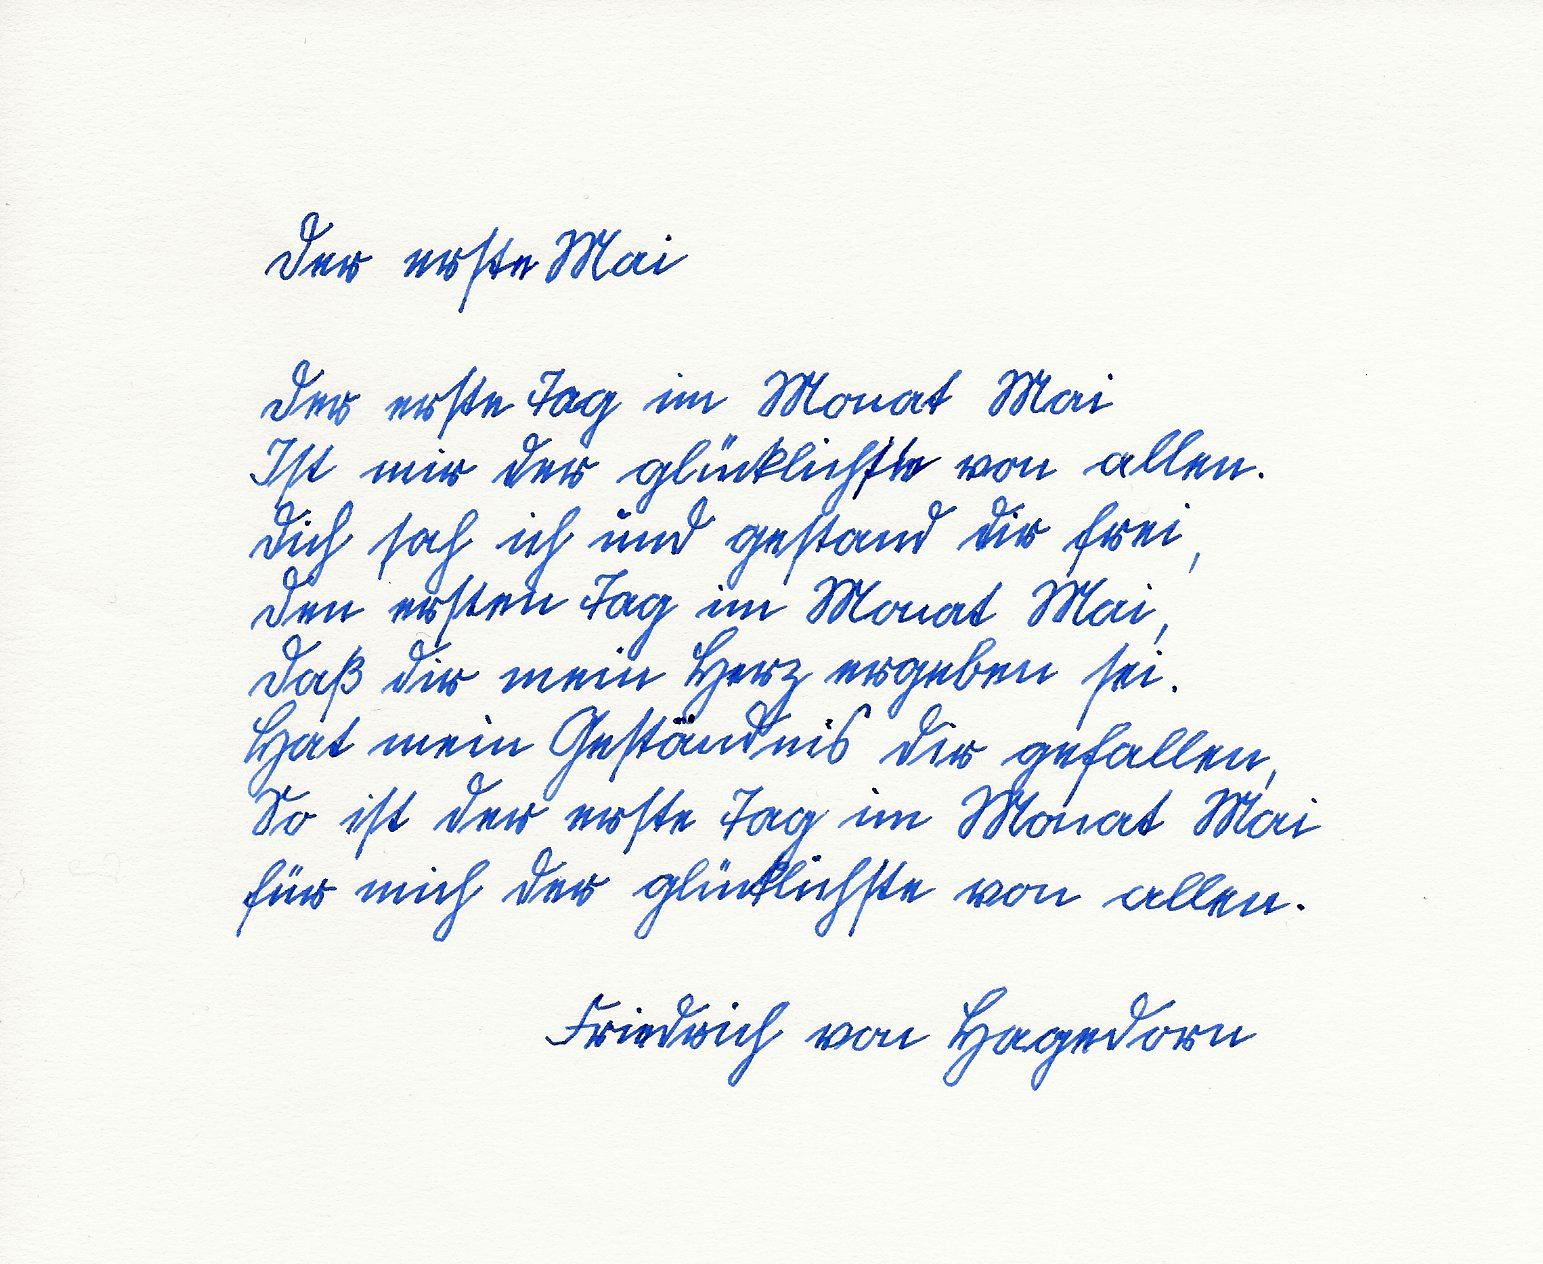 Der erste Mai
Der erste Tag im Monat Mai
Ist mir der glücklichste von allen.
Dich sah ich und gestand dir frei,
Den ersten Tag im Monat Mai,
Daß dir mein Herz ergeben sei.
Hat mein Geständnis dir gefallen,
So ist der erste Tag im Monat Mai
für mich der glücklichste von allen.
Friedrich von Hagedorn